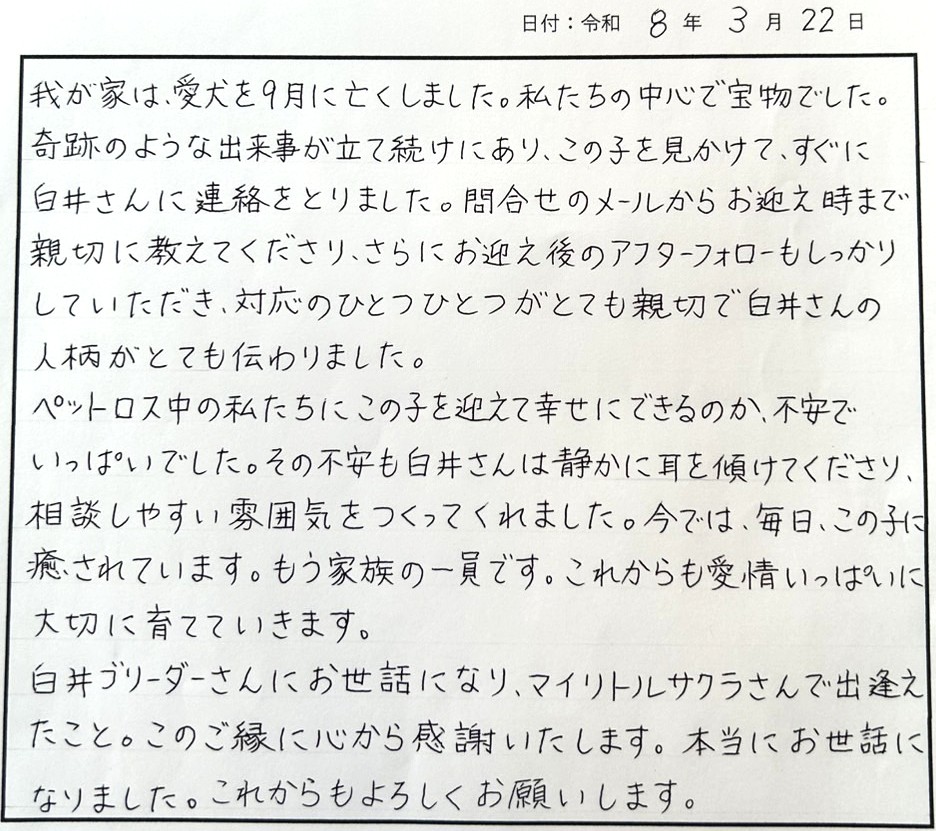 日付：令和 8 年 3 月 22 日
我が家は、愛犬を9月に亡くしました。私たちの中心で宝物でした。
奇跡のような出来事が立て続けにあり、この子を見かけて、すぐに
白井さんに連絡をとりました。問合せのメールからお迎え時まで
親切に教えてくださり、さらにお迎え後のアフターフォローもしっかり
していただき、対応のひとつひとつがとても親切で白井さんの
人柄がとても伝わりました。
ペットロス中の私たちにこの子を迎えて幸せにできるのか、不安で
いっぱいでした。その不安も白井さんは静かに耳を傾けてくださり、
相談しやすい雰囲気をつくってくれました。今では、毎日、この子に
癒されています。もう家族の一員です。これからも愛情いっぱいに
大切に育てていきます。
白井ブリーダーさんにお世話になり、マイリトルサクラさんで出逢え
たこと。このご縁に心から感謝いたします。本当にお世話に
なりました。これからもよろしくお願いします。